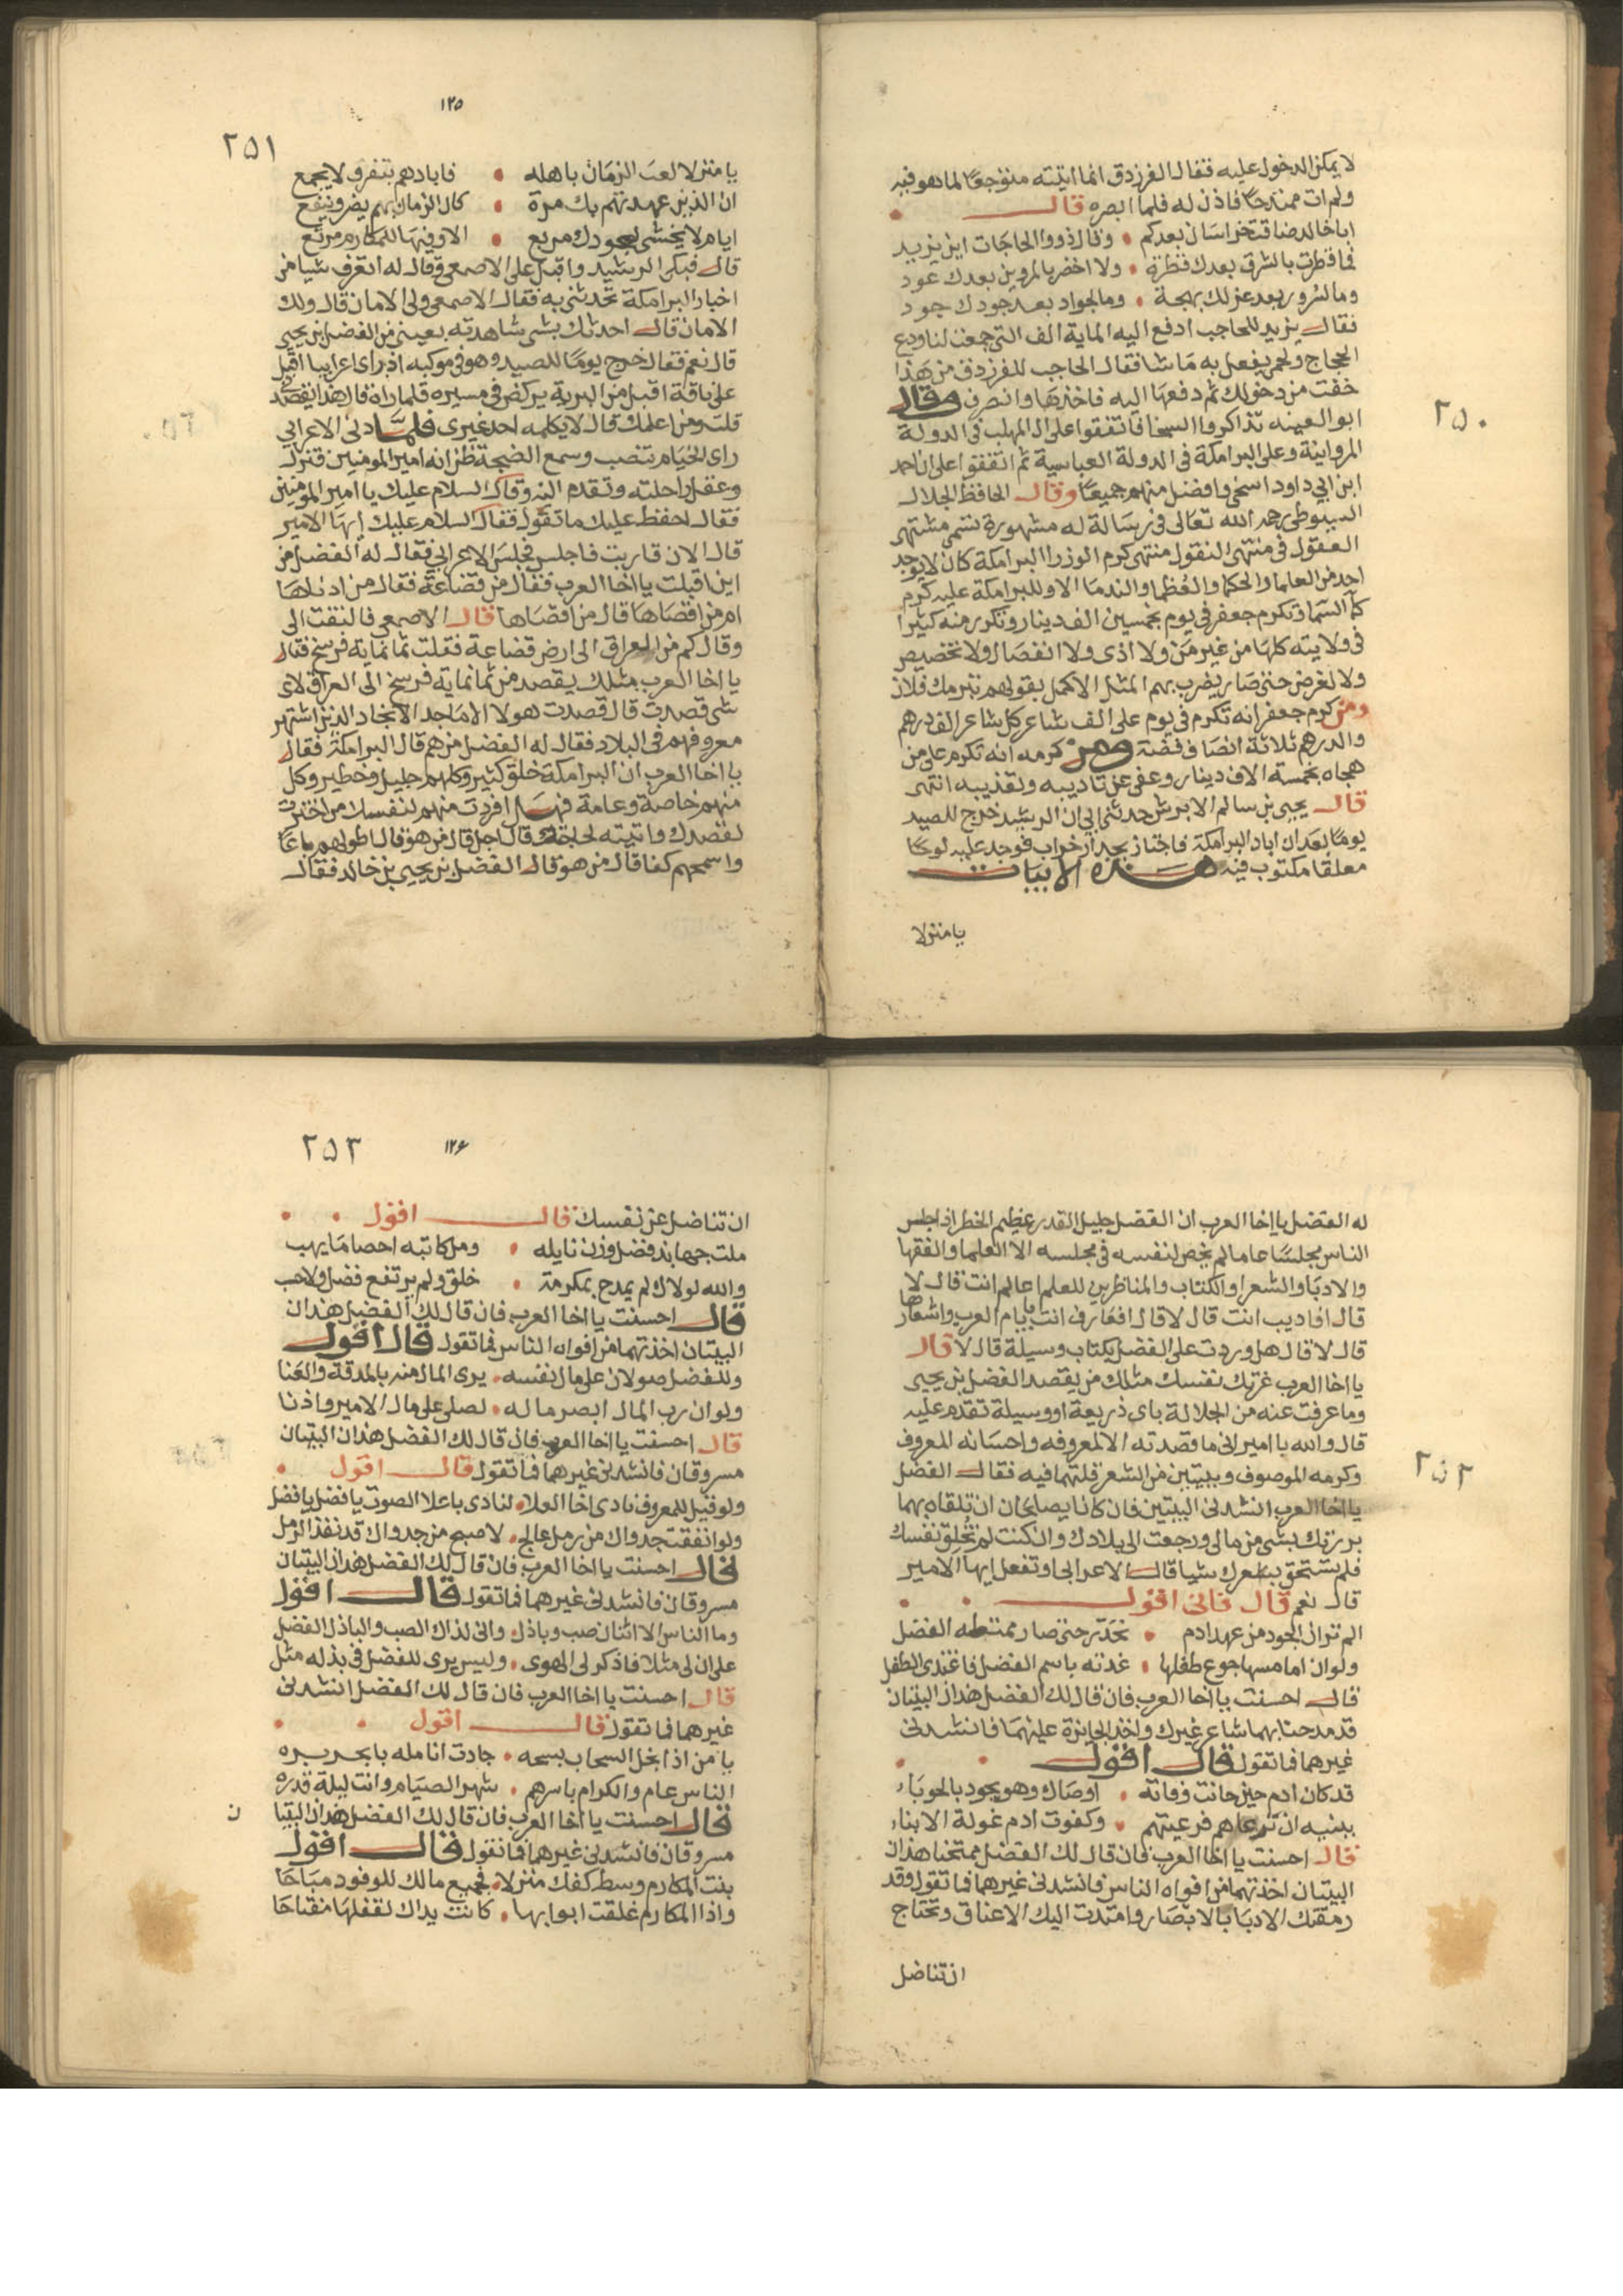 ٢٥٠
لا يمكن الدخول عليه فقال الفرزدق انما اتيته متوجعا لما هو فيه
ولم ات ممتدحا فاذن له فلما ابصره قال
ابا خالد ضاقت خراسان بعدكم • وقال ذووا الحاجات اين يزيد
فما قطرت بالشرق بعدك قطرة • ولا اخضر بالمروين بعدك عود
وما لسرور بعد عزلك بهجة • وما لجواد بعد جودك جود
فقال يزيد للحاجب ادفع اليه الماية الف التي جمعت لنا ودع
الحجاج ولحمي يفعل به ما شا فقال الحاجب للفرزدق من هذا
خفت من دخولك ثم دفعها اليه فاخذها وانصرف وقال
ابو العينه تذاكروا السخا فاتفقوا على ال المهلب في الدولة
المروانية وعلى البرامكة في الدولة العباسية ثم اتفقوا على ان احمد
ابن ابي داود اسخى وافضل منهم جميعا وقال الحافظ الجلال
السيوطي رحمه الله تعالى في رسالة له مشهورة تسمى مشتهى
العقول في منتهى النقول منتهى كرم الوزرا البرامكة كان لا يوجد
احد من العلما والحكما والعظما والندما الا وللبرامكة عليه كرم
كما السما وتكرم جعفر في يوم بخمسين الف دينار وتكرر منه كثيرا
في ولايته كلها من غير من ولا اذى ولا انفصال ولا تخصيص
ولا لغرض حتى صار يضرب بهم المثل الاكمل بقولهم تبرمك فلان
ومن كرم جعفر انه تكرم في يوم على الف شاعر كل شاعر الف درهم
والدرهم ثلاثة انصاف فضة ومن كرمه انه تكرم على من
هجاه بخمسة الاف دينار وعفى عن تاديبه وتعذيبه انتهى
قال يحيى بن سالم الابرش حدثني ابي ان الرشيد خرج للصيد
يوما بعد ان اباد البرامكة فاجتاز بجدار خراب فوجد عليه لوحا
معلقا مكتوب فيه هذه الابيات
يا منزلا
١٢٥
٢٥١
يا منزلا لعب الزمان باهله • فابادهم بتفرق لا يجمع
ان الذين عهدتهم بك مرة • كان الزمان بهم يضر وينفع
ايام لا يخشى لجودك مربع • الا وفيها للمكارم مرتع
قال فبكى الرشيد واقبل على الاصمعي وقال له اتعرف شيا من
اخبار البرامكة تحدثني به فقال الاصمعي ولي الامان قال ولك
الامان قال احدثك بشي شاهدته بعيني من الفضل بن يحيى
قال نعم فقال خرج يوما للصيد وهو في موكبه اذ راى اعرابيا اقبل
على ناقة اقبل من البرية يركض في مسيره فلما راه قال هذا يقصدني
قلت ومن اعلمك قال لا يكلمه احد غيري فلما دنى الاعرابي
راى الخيام تنصب وسمع الضجة ظن انه امير المومنين فنزل
وعقل راحلته وتقدم اليه وقال السلام عليك يا امير المومنين
فقال احفظ عليك ما تقول فقال السلام عليك ايها الامير
قال الان قاربت فاجلس فجلس الاعرابي فقال له الفضل من
اين اقبلت يا اخا العرب فقال من قضاعة فقال من ادناها
ام من اقصاها قال من اقصاها قال الاصمعي فالتفت الى
وقال كم من العراق الى ارض قضاعة فقلت ثمانماية فرسخ فقال
يا اخا العرب مثلك يقصد من ثمانماية فرسخ الى العراق لاي
شي قصدت قال قصدت هولا الاماجد الانجاد الذين اشتهر
معروفهم في البلاد فقال له الفضل من هم قال البرامكة فقال
يا اخا العرب ان البرامكة خلق كثير وكلهم جليل وخطير وكل
منهم خاصة وعامة فهل افردت منهم لنفسك من اخترت
لقصدك واتيته لحاجتك قال اجل قال من هو قال اطولهم باعا
واسمحهم كفا قال من هو قال الفضل بن يحيى بن خالد فقال
٢٥٢
له الفضل يا اخا العرب ان الفضل جليل القدر عظيم الخطر اذا جلس
الناس مجلسا عاما لم يخص لنفسه في مجلسه الا العلما والفقها
والادبا والشعرا والكتاب والمناظرين للعلم اعالم انت قال لا
قال افاديب انت قال لا قال افعارف انت بايام العرب واشعارها
قال لا قال هل وردت على الفضل بكتاب وسيلة قال لا قال
يا اخا العرب غرتك نفسك مثلك من يقصد الفضل بن يحيى
وما عرفت عنه من الجلالة باي ذريعة او وسيلة تقدم عليه
قال والله يا امير اني ما قصدته الا لمعروفه واحسانه المعروف
وكرمه الموصوف وبيتين من الشعر قلتهما فيه فقال الفضل
يا اخا العرب انشدني البيتين فان كانا يصلحان ان تلقاه بهما
بررتك بشي من مالي ورجعت الى بلادك وان كنت لم تخلق نفسك
فلم تستحق بشعرك شيا قال الاعرابي او تفعل ايها الامير
قال نعم قال فاني اقول
الم تر ان الجود من عهد ادم • تحدر حتى صار ممتطه الفضل
ولو ان اما مسها جوع طفلها • غدته باسم الفضل فاغتدى الطفل
قال احسنت يا اخا العرب فان قال لك الفضل هذان البيتان
قد مدحنا بهما شاعر غيرك واخذ الجايزة عليهما فانشدني
غيرهما فما تقول قال اقول
قد كان ادم حين حانت وفاته • اوصاك وهو يجود بالحوباء
ببنيه ان ترعاهم فرعيتهم • وكفوت ادم غولة الابناء
قال احسنت يا اخا العرب فان قال لك الفضل ممتحنا هذان
البيتان اخذتهما من افواه الناس فانشدني غيرهما فما تقول وقد
رمقتك الادبا بالابصار وامتدت اليك الاعناق وتحتاج
ان تناضل
١٢٦
٢٥٣
ان تناضل عن نفسك قال اقول
ملت جهابذ فضل وزن نايله • ومل كاتبه احصا ما يهب
والله لولاك لم يمدح بمكرمة • خلق ولم يرتفع فضل ولا حب
قال احسنت يا اخا العرب فان قال لك الفضل هذان
البيتان اخذتهما من افواه الناس فما تقول قال اقول
وللفضل صولان على مال نفسه • يرى المال منه بالمدقة والعنا
ولو ان رب المال ابصر ماله • لصلى على مال الامير واذنا
قال احسنت يا اخا العرب فان قال لك الفضل هذان البيتان
مسروقان فانشدني غيرهما فما تقول قال اقول
ولو قيل للمعروف نادى اخا العلا • لنادى باعلا الصوت يا فضل يا فضل
ولو انفقت جدواك من رمل عالج • لاصبح من جدواك قد نفذ الرمل
قال احسنت يا اخا العرب فان قال لك الفضل هذان البيتان
مسروقان فانشدني غيرهما فما تقول قال اقول
وما الناس الا اثنان صب وباذل • واني لذاك الصب والباذل الفضل
على ان لي مثلا فاذكر لي الهوى • وليس يرى للفضل في بذله مثل
قال احسنت يا اخا العرب فان قال لك الفضل انشدني
غيرهما فما تقول قال اقول
يا من اذا بخل السحاب بسحه • جادت انامله بابحر بره
الناس عام والكرام باسرهم • شهر الصيام وانت ليلة قدره
قال احسنت يا اخا العرب فان قال لك الفضل هذان البيتان
مسروقان فانشدني غيرهما فما تقول قال اقول
بنت المكارم وسط كفك منزلا • فجميع مالك للوفود مباحا
واذا المكارم غلقت ابوابها • كانت يداك لقفلها مفتاحا